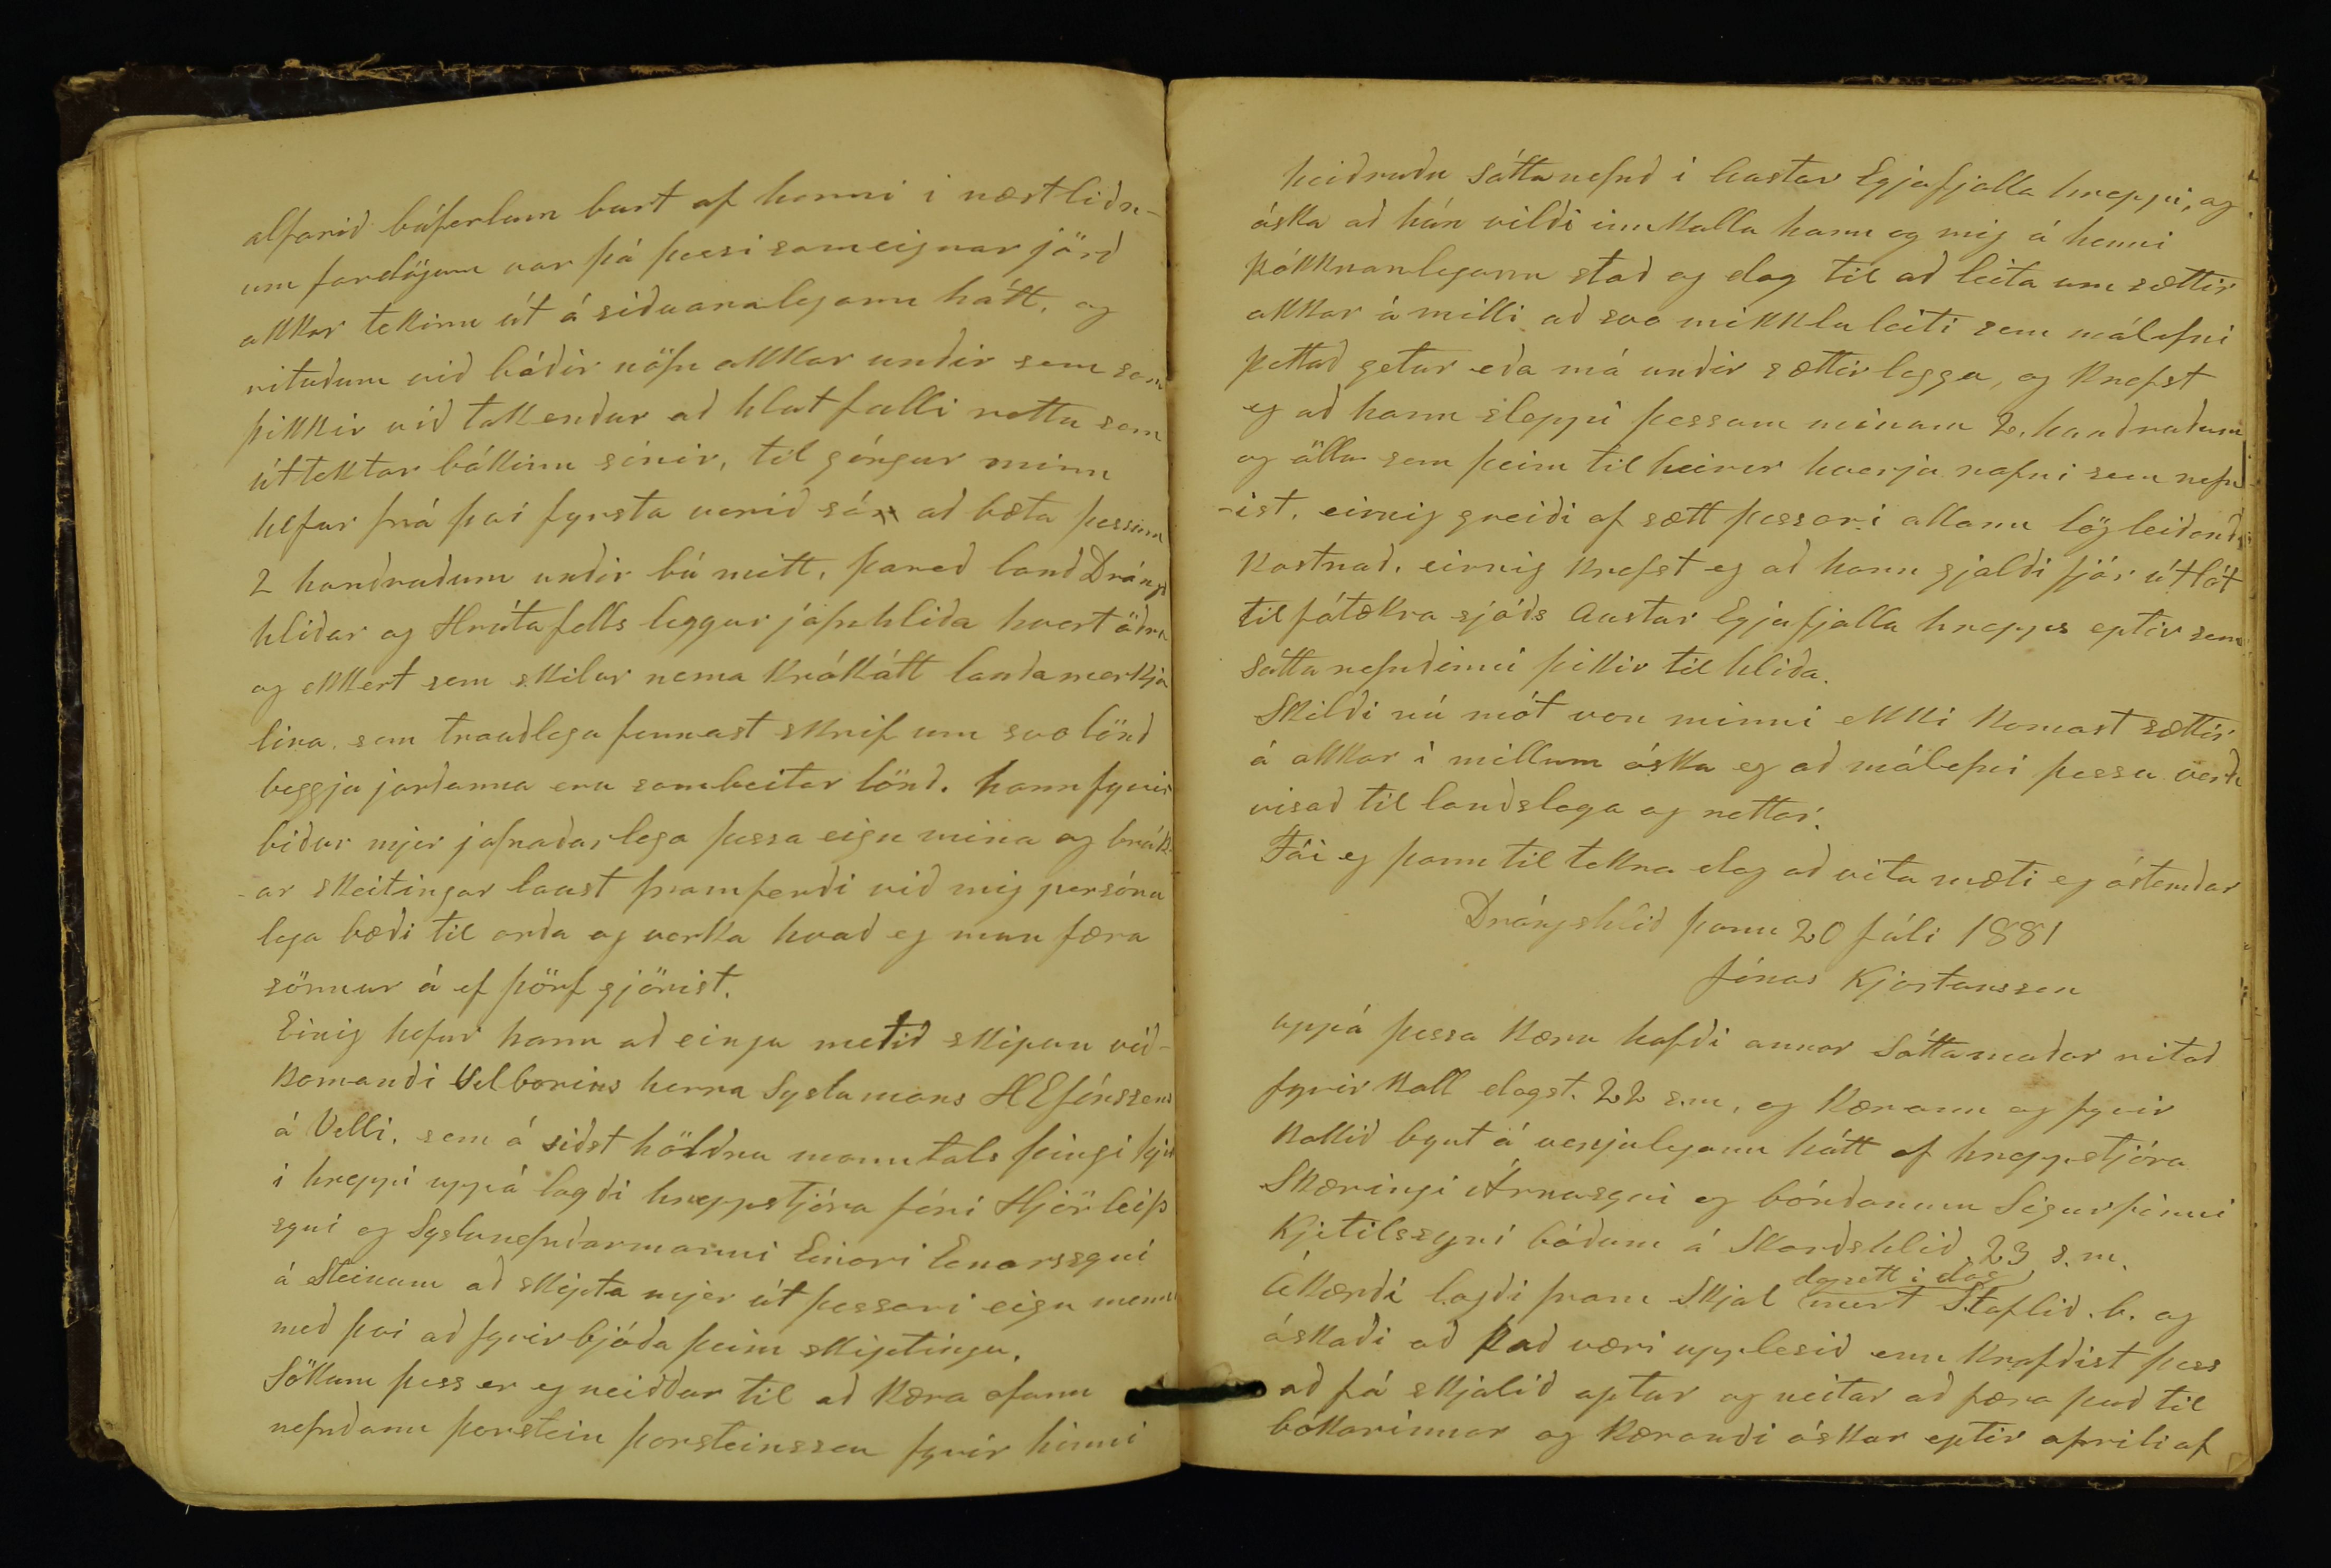 alfarið búferlum burt af henni i næstliðn-
um fardögum var þá þessi sameignar jörð
okkar tekinn út á siðvanalegann hátt, og
rituðum við báðir nöfn okkar undir sem sam
þikkir við takendur að hlutfalli rettu sem
úttektar bókinn sinir, til gángur minn
hefur frá því fyrsta verið sá að bæta þessum
2 hundruðum undir bú mitt, þareð land Drángs
hliðar og Hrútafells leggur jafnhliða hvert öðru
og ekkert sem skilur nema krókótt landamerkja
lina, sem trauðlega finnast skrif um svo lönd
beggja jarðanna eru sambeitar lönd. hann fyrir
biður mjer jafnaðarlega þessa eign mina og brúk
-ar skeitingar laust framferði við mig persónu
lega bæði til orða og verka hvað eg mun færa
sönnur á ef þörf gjörist.
Einig hefur hann að eingu metið skipun við-
komandi Velborins herra Syslumans HEJónssens
á Velli, sem á siðst höldnu manntals þingi hjer
i hreppi uppá lagði hreppstjóra Jóni Hjörleifs
syni og Syslunefndarmanni Einari Einarssyni
á Steinum að skipta mjer út þessari eign minni
með þvi að fyrirbjóða þeim skiptingu.
Sökum þess er eg neiddur til að kæra ofann
nefndann þorstein þorsteinssen fyrir hinni
heiðruðu Sáttanefnd i Austur Eyjafjalla hreppi, og
óska að hún vildi innkalla hann og mig á henni
þókknanlegann stað og dag til að leita um sættir
okkar á milli að svo mikklu leiti sem málefni
þettað getur eða má undir sættir leggja, og krefst
eg að hann sleppi þessum minum 2. hundruðum
og öllu sem þeim til heirir hverju nafni sem nefn
-ist, einnig greiði af sætt þessari allann lögleiðandi
kostnað, einnig krefst eg að hann gjaldi fjár útlát
til fátækra sjóðs Austur Eyjafjalla hrepps eptir sem
Sáttanefndinni þikir til hliða.
Skildi nú mót von minni ekki komast sættir
á okkar i millum óska eg að málefni þessu verði
visað til landslaga og rettar.
Fái eg þann til tekna dag að vita mæti eg óstemdar
Drángshlið þann 20 Júli 1881
Jónas Kjartanssen
uppá þessa kæru hafði annar Sáttamaðar ritað
fyrirkall dagst. 22 s.m, og kærann og fyrir
kallið byrt á venjulegann hátt af hreppstjóra
Skæringi Árnasyni og bóndanum Sigurfinni
Kjetilssyni báðum á Skarðshlið 23 s.m.
dagsett i dag
Ákærði lagði fram Skjal mert Staflið. b. og
óskaði að það væri upplesið enn krafðist þess
að fá skjalið aptur og neitar að færa það til
bókarinnar og kærandi óskar eptir afriti af